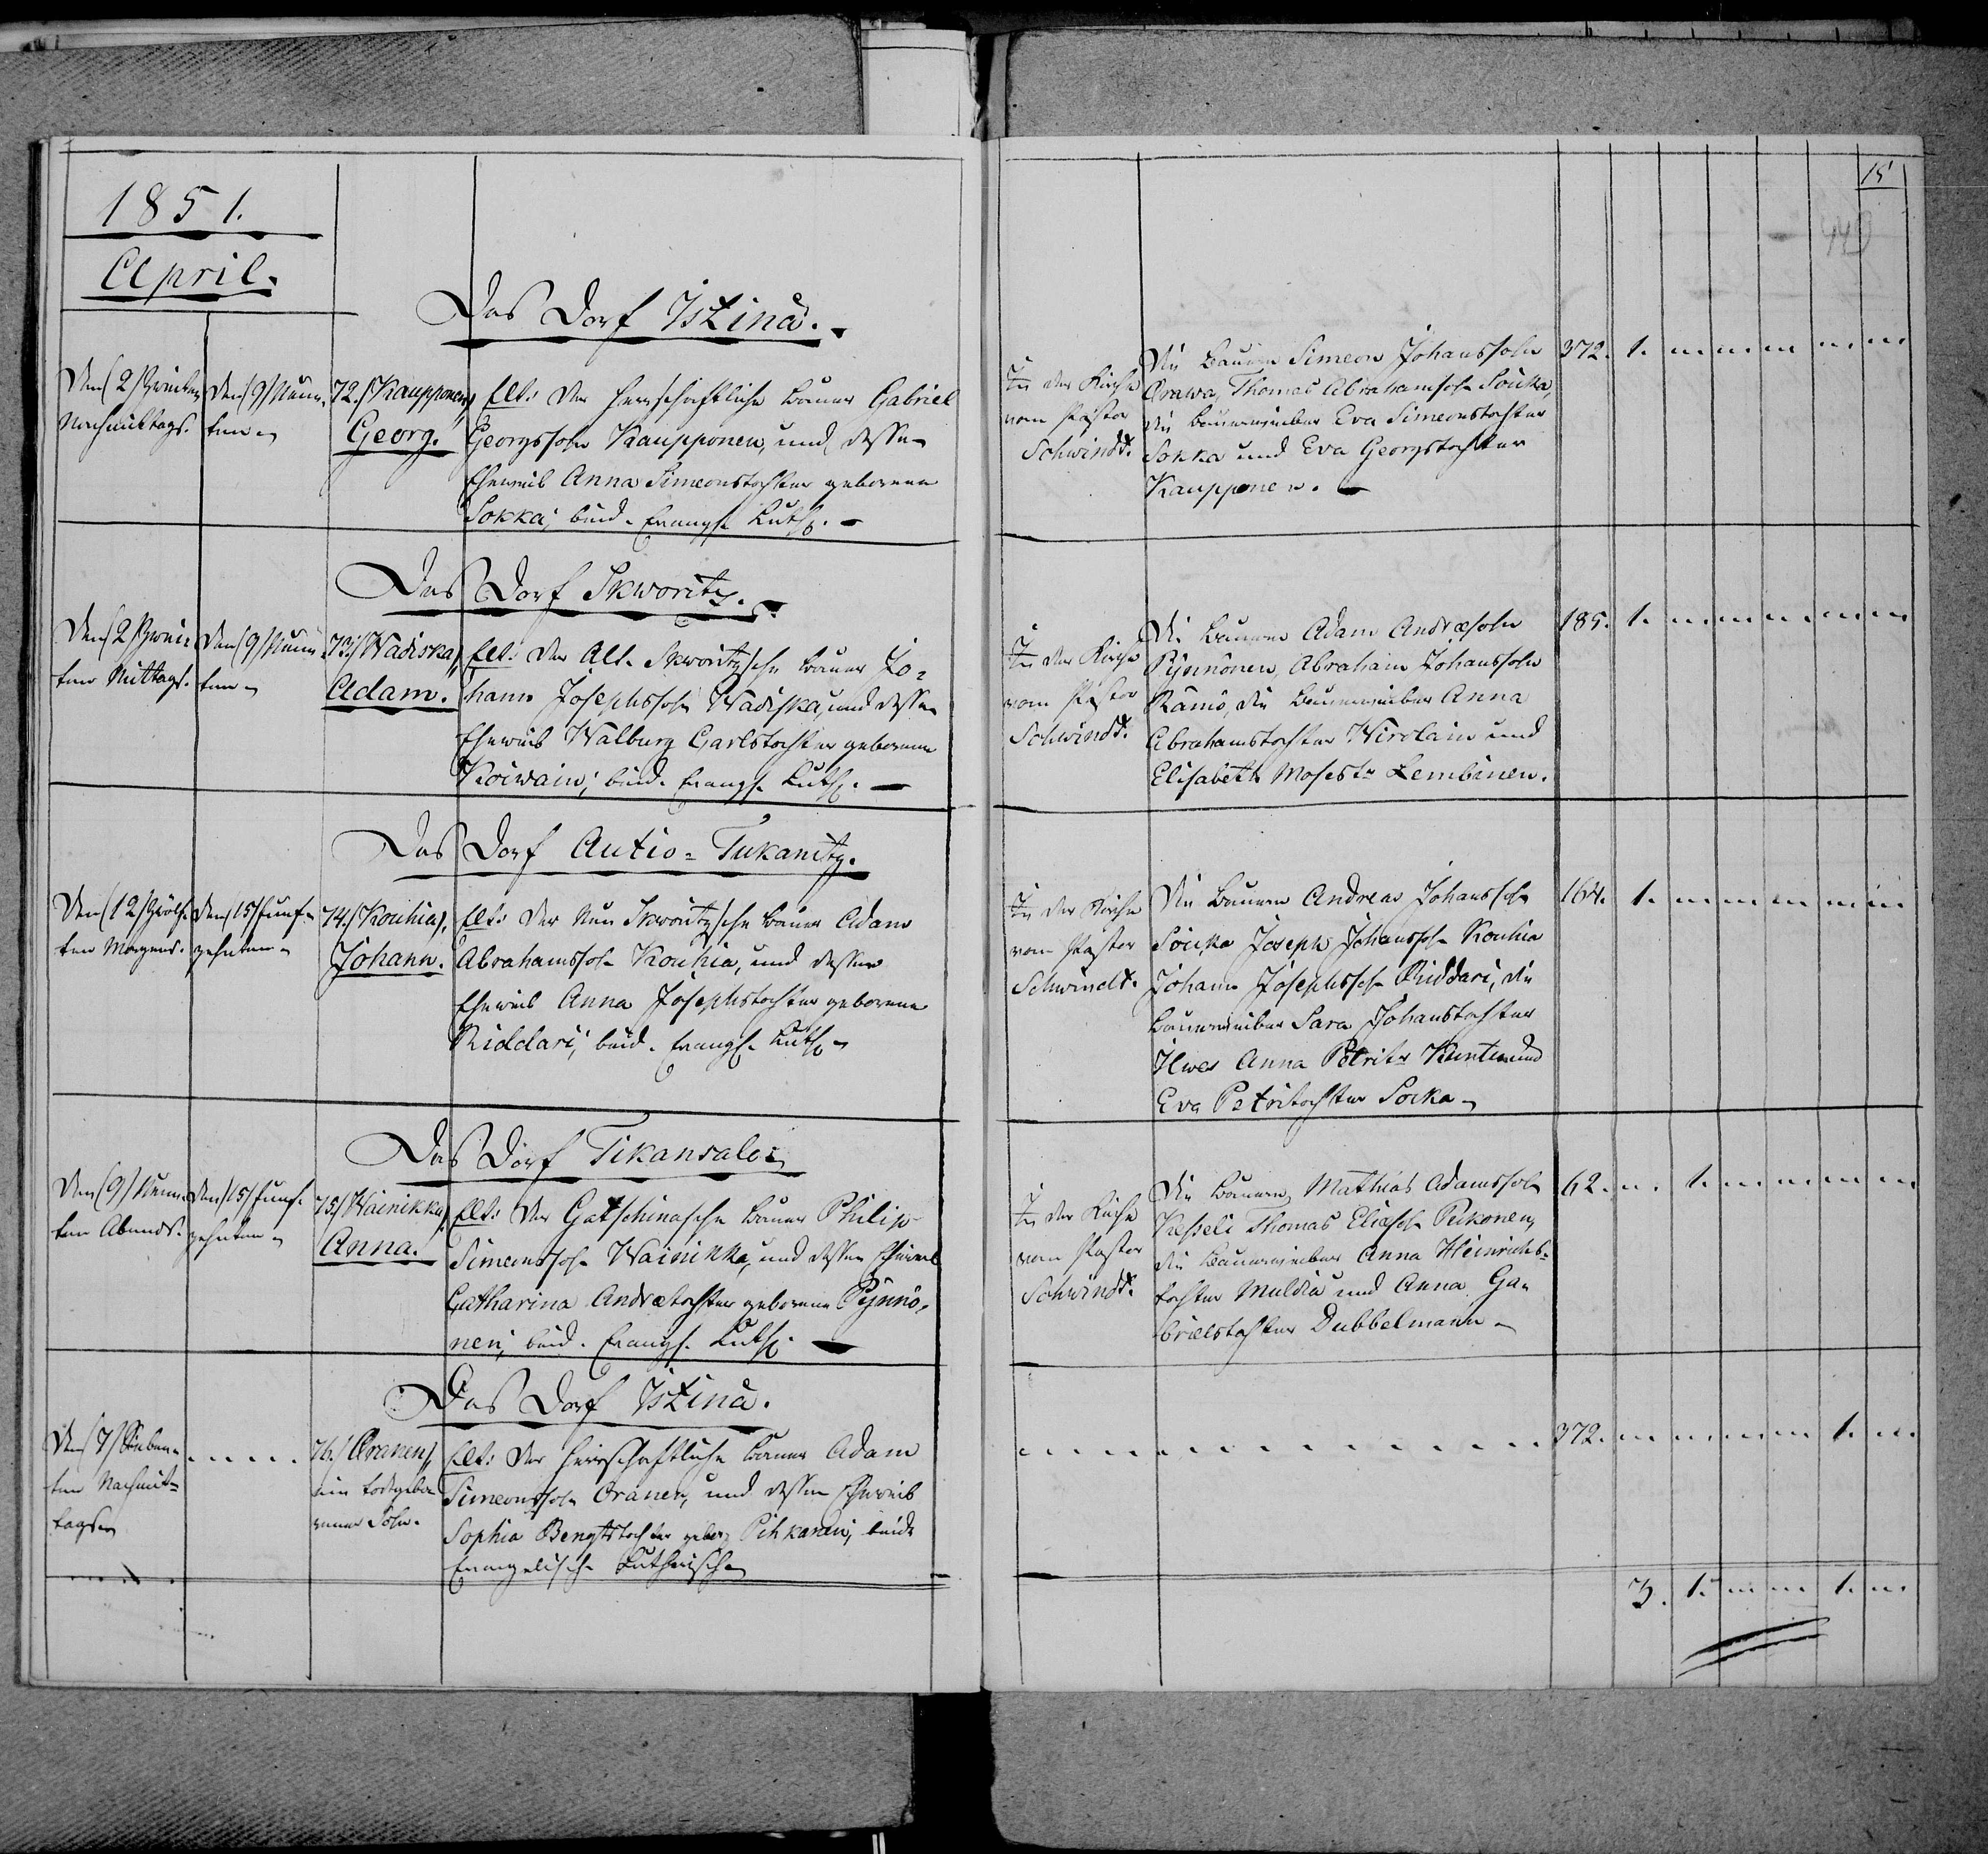 1851.
April.
15
449
Das Dorf Iskina.
Den (2) Zweiten
Nachmittags.
Den (9) Neun-
ten
72./ Kaupponen,
Georg.
Elt: Der herrschaftliche Bauer Gabriel
Georgssohn Kaupponen, und dessen
Eheweib Anna Simeonstochter geborene
Sokka, beid. Evangl. Luth.
In der Kirche
vom Pastor
Schwindt.
Die Bauern Simeon Johanssohn
Orawa, Thomas Abrahamsohn Souka,
die Bauerweiber Eva Simeonstochter
Sokka und Eva Georgstochter
Kaupponen.
372. 1.
Das Dorf Skworitz.
Den (2) Zwei-
ten Mittags.
Den (9) Neun-
ten
73./ Wadiska,
Adam.
Elt: Der Alt-Skworitzsche Bauer Jo-
hann Josephssohn Wadiska, und dessen
Eheweib Walburg Carlstochter geborene
Koiwain, beid. Evangl. Luth.
In der Kirche
vom Pastor
Schwindt.
Die Bauern Adam Andræsohn
Pynnönen, Abraham Johanssohn
Rämö, die Bauerweiber Anna
Abrahamstochter Wirolain und
Elisabeth Mosestr Lembinen.
185. 1.
Das Dorf Autio-Tukanitz.
Den (12) Zwölf-
ten Morgens.
Den (15) Fünf-
zehnten
74./ Kouhia,
Johann.
Elt: Der Neu Skworitzsche Bauer Adam
Abrahamssohn Kouhia, und dessen
Eheweib Anna Josephstochter geborene
Riddari, beid. Evangl. Luth.
In der Kirche
vom Pastor
Schwindt.
Die Bauern Andreas Johanssohn
Souka Joseph Johanssohn Kouhia
Johann Josephssohn Riddari, die
Bauerweiber Sara Johanstochter
Ilwes Anna Petritr und
Eva Petritochter Socka
164. 1.
Das Dorf Tikansalo
Den (9) Neun-
ten Abends.
Den (15) Fünf-
zehnten
75./ Wainikka,
Anna.
Elt: Der Gatschinasche Bauer Philip
Simeonssohn Wainikka, und dessen Eheweib
Catharina Andrætochter geborene Pynnö-
nen, beid. Evangl. Luth.
In der Kirche
vom Pastor
Schwindt.
Die Bauern Mathias Adamssohn
Kesseli Thomas Eliassohn Pekonen,
die Bauerweiber Anna Heinrichs-
tochter Muldia und Anna Ga-
brielstochter Dubbelmann
62. 1.
Das Dorf Iskina.
Den (7) Sieben-
ten Nachmit-
tags
76./ Oranen,
ein todtgebo-
rener Sohn.
Elt: Der herrschaftliche Bauer Adam
Simeonssohn Oranen, und dessen Eheweib
Sophia Bengtstochter gebor. Pihkarain, beide
Evangelische Lutherische
372. 1.
3. 1. 1.